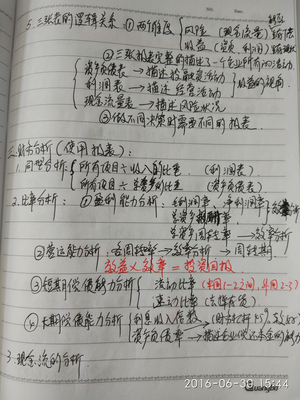 5. 三张表的逻辑关系 ① 两个维度 风险 (现金流量)
收益 (资负,利润)
② 三张报表完整的描述了一个企业所有的活动
资产负债表 → 描述投融资活动
利润表 → 描述 经营活动
收益的视角
现金流量表 → 描述风险状况
③ 做不同决策时需要不同的报表
三、财务分析 (使用报表):
1. 同型分析: 所有项目÷收入的比重 (利润表)
所有项目÷总资产的比重 (资产负债表)
2. 比率分析: ① 盈利能力分析: 毛利润率、净利润率
总资产周转率 → 效率分析
② 营运能力分析: → 效率分析 → 周转期
效益 × 效率 = 投资回报
③ 短期偿债能力分析 流动比率 (中国1-2之间, 美国2-3)
速动比率
④ 长期偿债能力分析 利息收入倍数
资产负债率 → 描述企业偿还本金的能力
3. 现金流的分析
2016-06-30 15:44